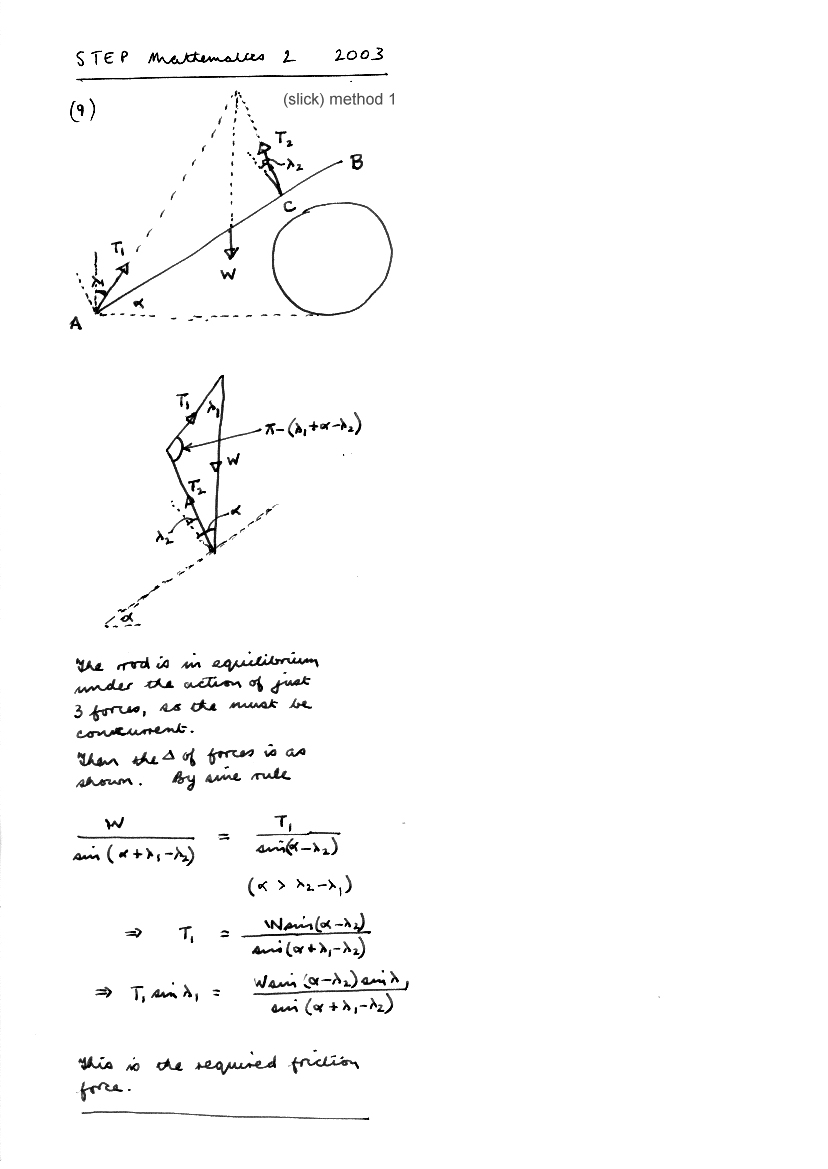 STEP Mathematics 2 2003
(9)
(slick) method 1
T₂
λ₂
B
C
T₁
W
λ₁
α
A
T₁
λ₁
π-(λ₁+α-λ₂)
W
T₂
α
λ₂
α
The rod is in equilibrium
under the action of just
3 forces, so the must be
concurrent.
Then the Δ of forces is as
shown. By sine rule
W / sin(α+λ₁-λ₂) = T₁ / sin(α-λ₂)
(α > λ₂-λ₁)
⇒ T₁ = W sin(α-λ₂) / sin(α+λ₁-λ₂)
⇒ T₁ sin λ₁ = W sin(α-λ₂) sin λ₁ / sin(α+λ₁-λ₂)
This is the required friction
force.